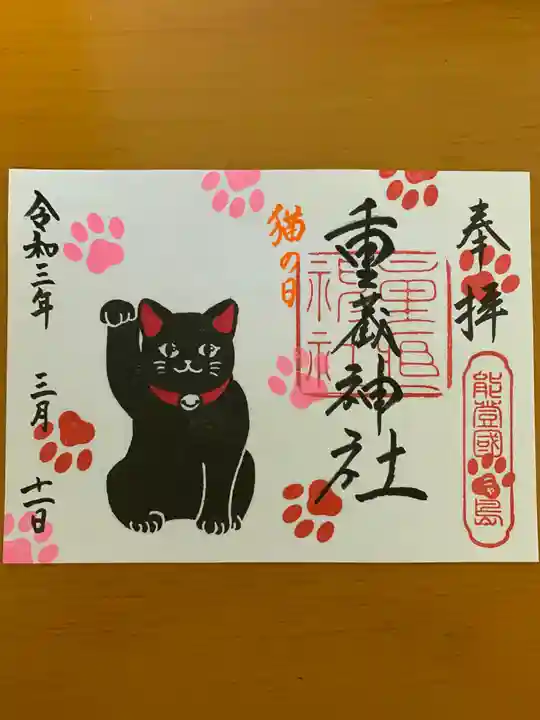 奉拝
能登國
島
重蔵神社
猫の日
令和三年 三月 十一日